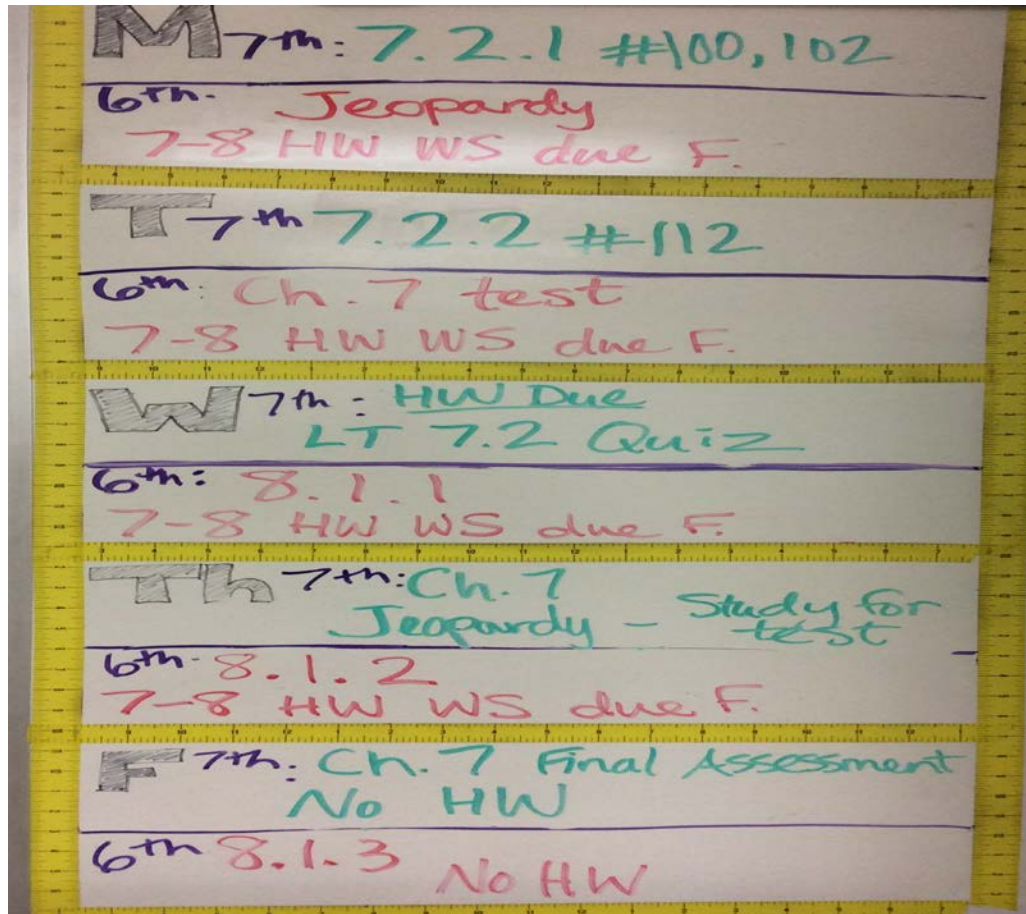 M 7th: 7.2.1 #100, 102
6th- Jeopardy
7-8 HW WS due F.
T 7th 7.2.2 #112
6th: Ch. 7 test
7-8 HW WS due F.
W 7th: HW Due
LT 7.2 Quiz
6th: 8.1.1
7-8 HW WS due F.
Th 7th: Ch. 7
Jeopardy - Study for
test
6th- 8.1.2
7-8 HW WS due F.
F 7th: Ch. 7 Final Assessment
No HW
6th 8.1.3
No HW